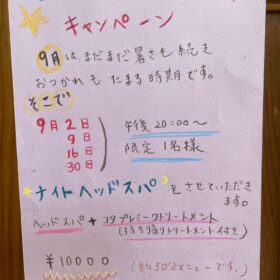 キャンペーン
9月は、まだまだ暑さも続き
おつかれも たまる時期です。
そこで
9月2日
9日
16日
30日
午後20:00〜
限定1名様
ナイトヘッドスパをさせていただき
ます。
ヘッドスパ + コタプレミークトリートメント
(お持ち帰りトリートメント付き)
¥10000
(約50分メニューです。)